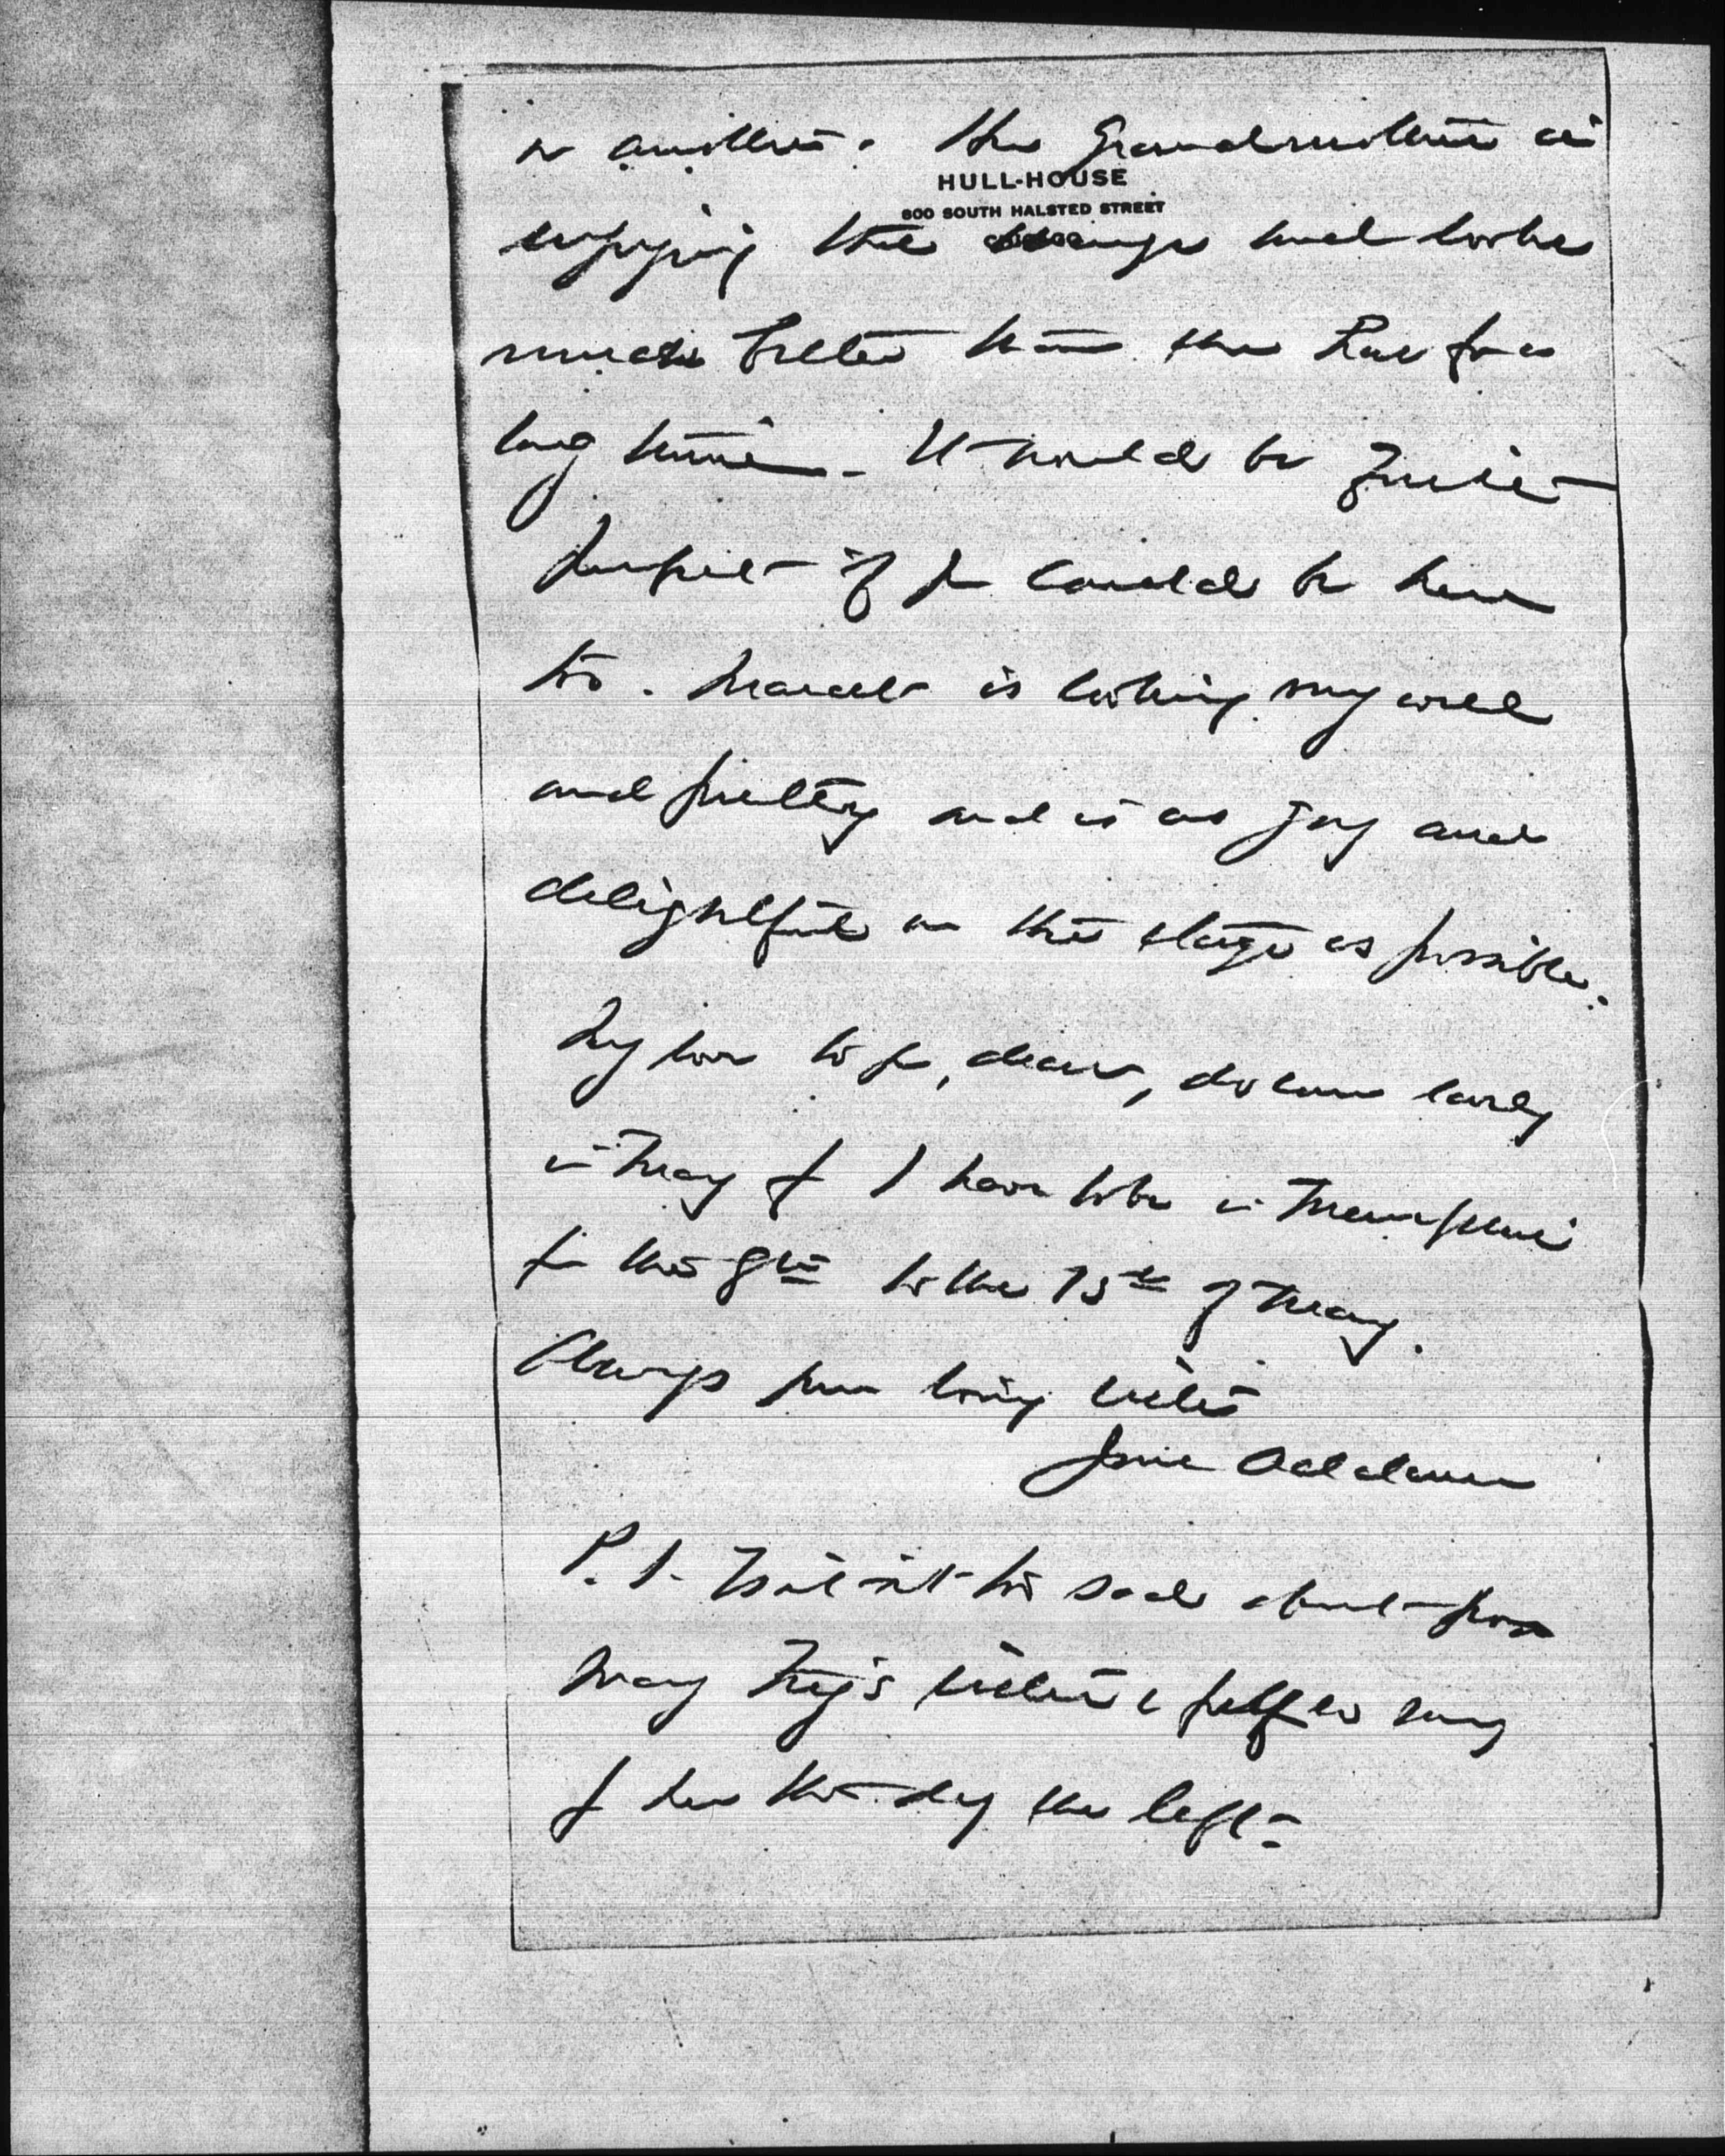 or another. The Grandmother is
HULL-HOUSE
800 SOUTH HALSTED STREET
CHICAGO
enjoying the change and looks
much better than she has for a
long time. It would be quite
perfect if you could be here
too. Marcet is looking very well
and pretty and is as gay and
delightful on the stage as possible.
My love to you, dear, do come early
in May for I have to be in Memphis
from the 8th to the 15th of May.
Always your loving sister
Jane Addams
P.S. Isn't it too sad about poor
Mary Fry's sister I felt so sorry
for her the day she left